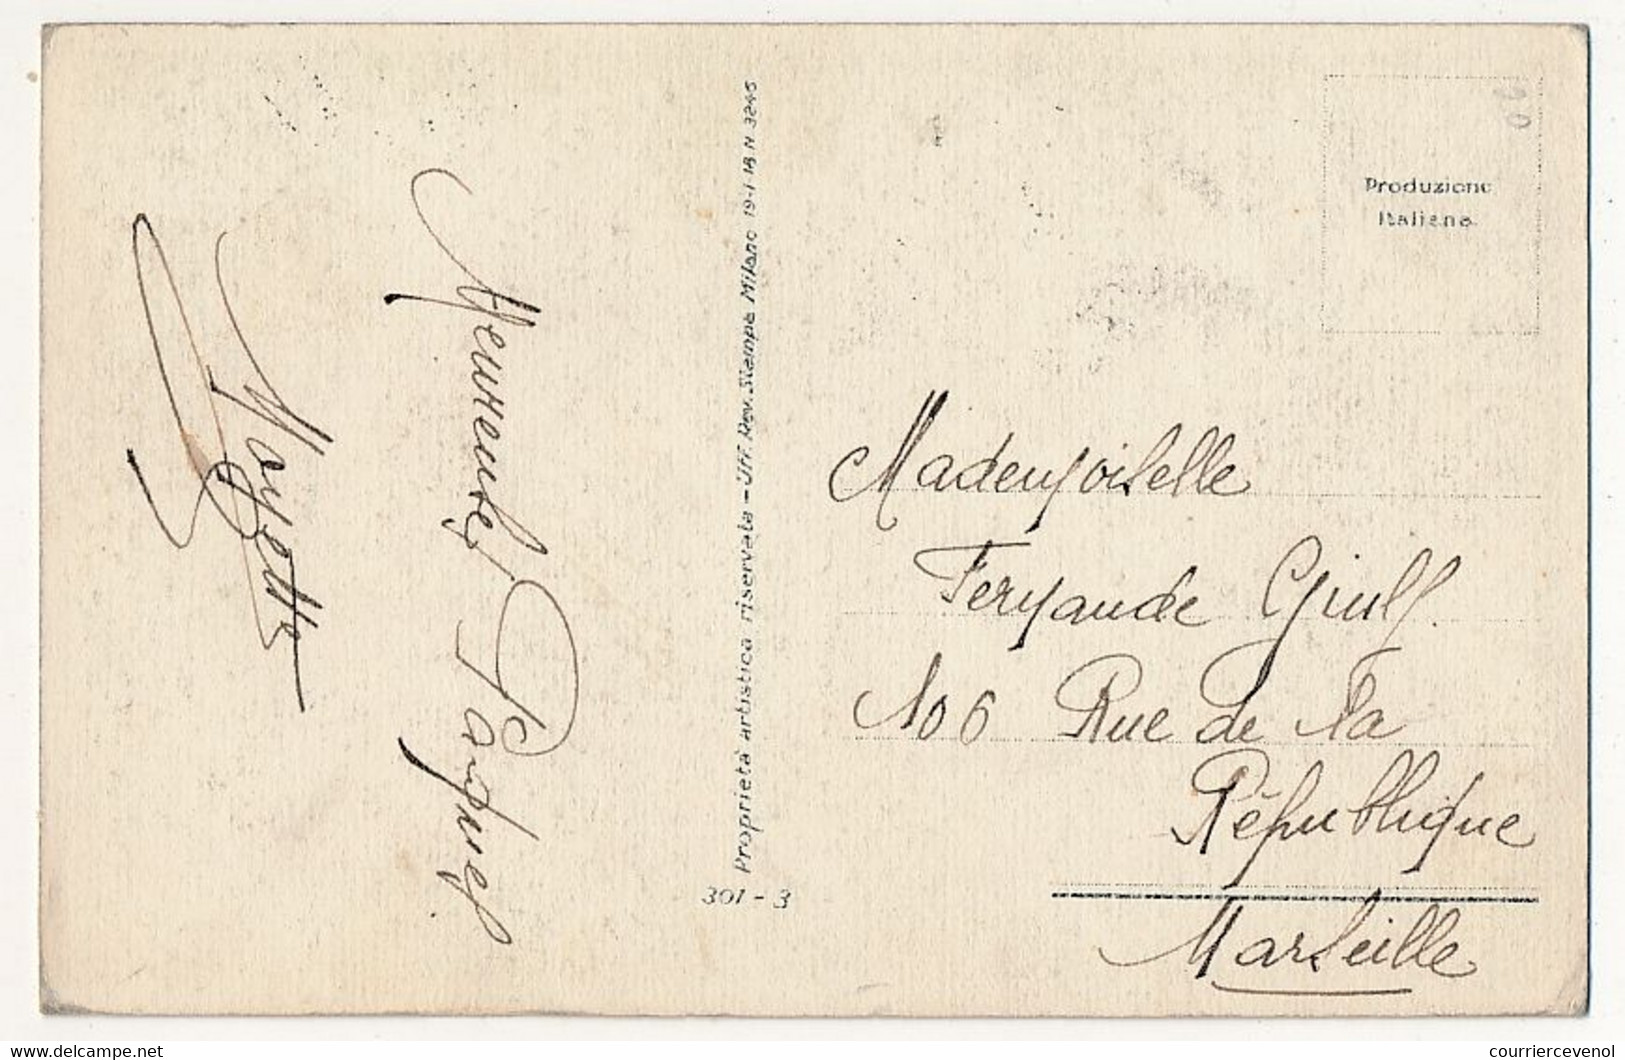 Meilleures Pâques
Mayette
Proprietà artistica riservata - Uff. Rev. Stampa Milano 19-1 18 N 3245
301 - 3
Produzione
Italiana
Mademoiselle
Fernande
106 Rue de la
République
Marseille
courriercevenol
www.delcampe.net